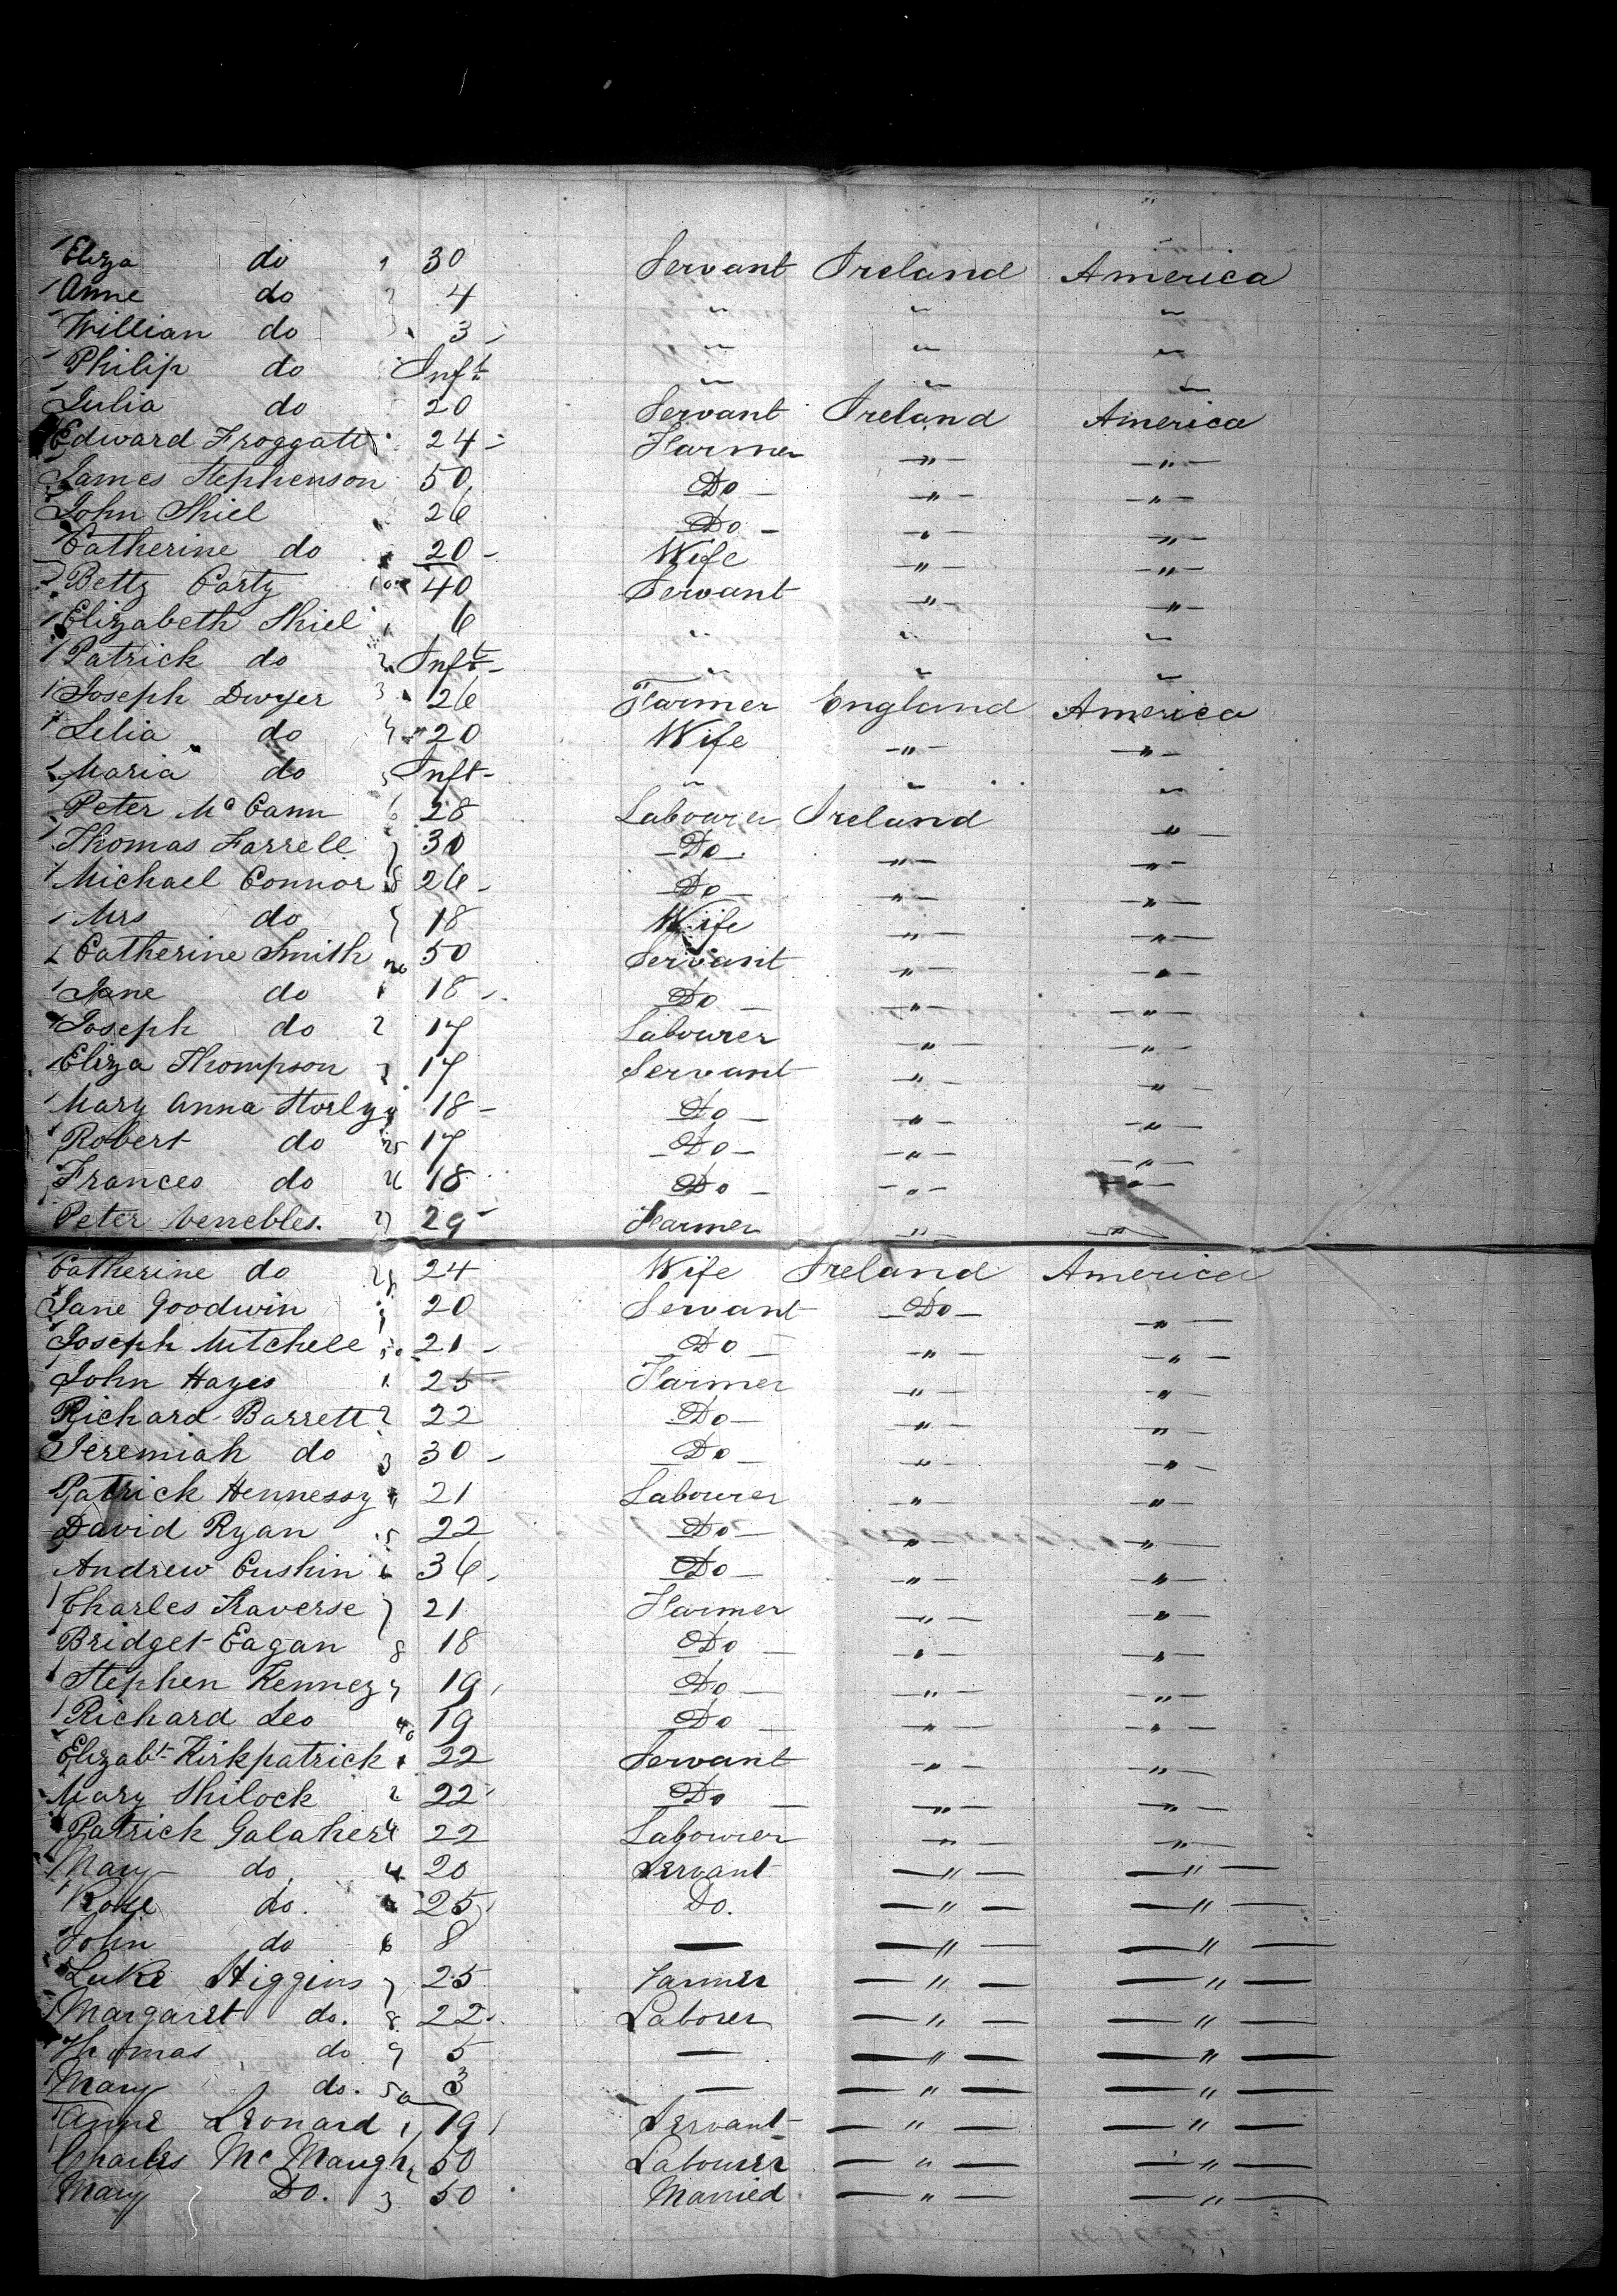 Eliza do 1 30 Servant Ireland America
Anne do 2 4 " " "
Willian do 3 3 " " "
Philip do Inft " " "
Julia do 20 Servant Ireland America
Edward Froggatt 24 Farmer " "
James Stephenson 50 Do " "
John Shiel 26 Do " "
Catherine do 20 Wife " "
Betty Carty 10 40 Servant " "
Elizabeth Shiel 1 6 " " "
Patrick do 2 Inft " " "
Joseph Dwyer 3 26 Farmer England America
Lelia do 4 20 Wife " "
Maria do 5 Inft " " "
Peter McCann 6 28 Labourer Ireland "
Thomas Farrell 7 30 Do " "
Michael Connor 8 26 Do " "
Mrs do 9 18 Wife " "
Catherine Smith 20 50 Servant " "
Jane do 1 18 Do " "
Joseph do 2 17 Labourer " "
Eliza Thompson 3 17 Servant " "
Mary Anna 18 Do " "
Robert do 25 17 Do " "
Frances do 26 18 Do " "
Peter Venebles. 27 29 Farmer " "
Catherine do 28 24 Wife Ireland America
Jane Goodwin 9 20 Servant Do "
Joseph Mitchell 30 21 Do " "
John Hayes 1 25 Farmer " "
Richard Barrett 2 22 Do " "
Jeremiah do 3 30 Do " "
Patrick Hennessy 4 21 Labourer " "
David Ryan 5 22 Do " "
Andrew Cushin 6 36 Do " "
Charles Traverse 7 21 Farmer " "
Bridget Eagan 8 18 Do " "
Stephen Kenney 9 19 Do " "
Richard Leo 40 19 Do " "
Elizabt Kirkpatrick 1 22 Servant " "
Mary Shilock 2 22 Do " "
Patrick Galaher 22 Labourer " "
Mary do 4 20 Servant " "
Rose do. 25 Do. " "
John do 6 8 — " "
Luke Higgins 7 25 Farmer " "
Margaret do. 8 22 Laborer " "
Thomas do 9 5 — " "
Mary do. 50 3 — " "
Anne Leonard 1 19 Servant " "
Charles McMaugh 2 50 Labourer " "
Mary Do. 3 50 Married " "